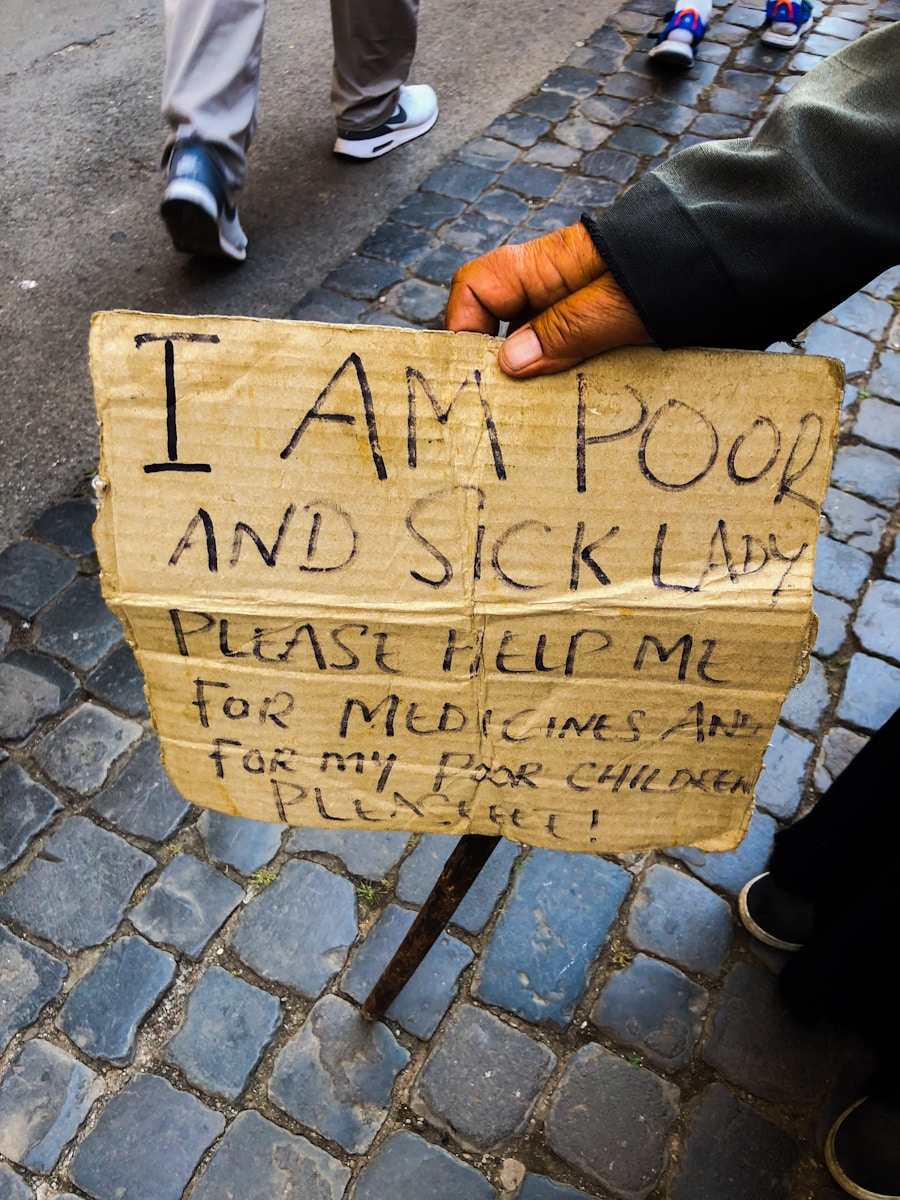 I AM POOR
AND SiCK LADY
PLEASE HELP ME
FOR MEDICINES AND
FOR MY POOR CHILDREN